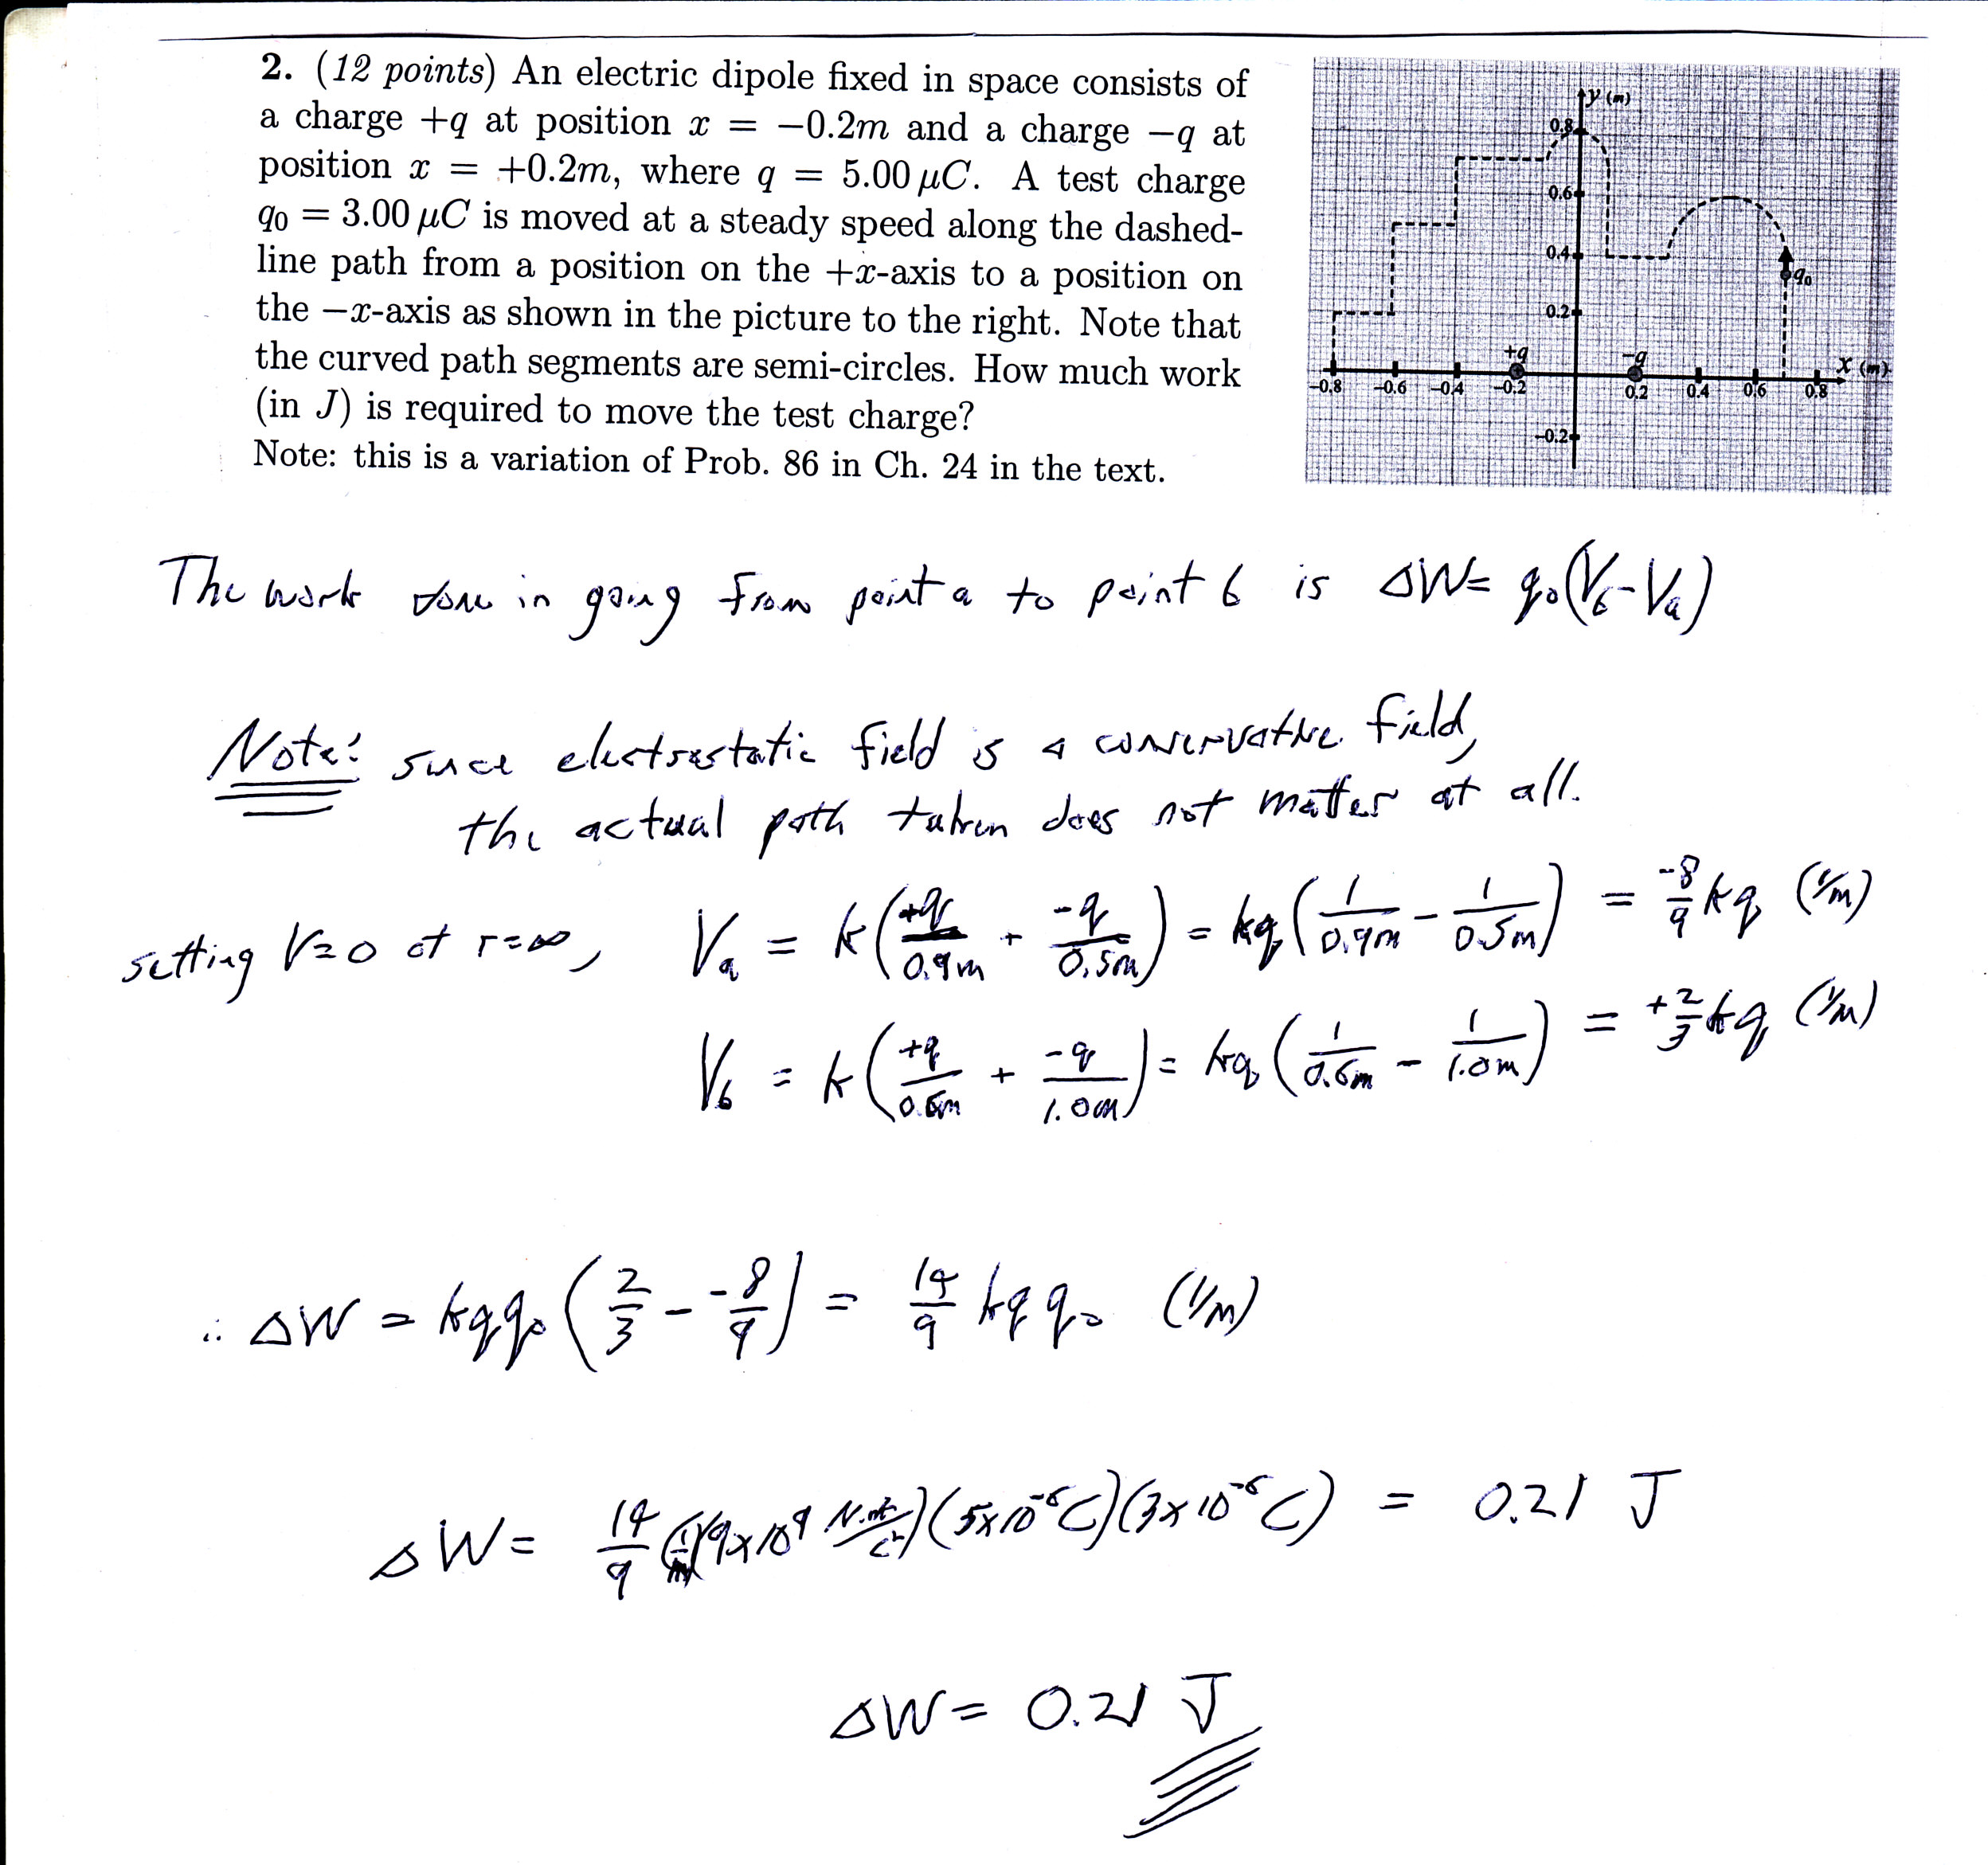 2. (12 points) An electric dipole fixed in space consists of
a charge +q at position x = −0.2m and a charge −q at
position x = +0.2m, where q = 5.00 μC. A test charge
q₀ = 3.00 μC is moved at a steady speed along the dashed-
line path from a position on the +x-axis to a position on
the −x-axis as shown in the picture to the right. Note that
the curved path segments are semi-circles. How much work
(in J) is required to move the test charge?
Note: this is a variation of Prob. 86 in Ch. 24 in the text.
y (m)
0.8
0.6
0.4
q₀
0.2
+q −q x (m)
−0.8 −0.6 −0.4 −0.2 0.2 0.4 0.6 0.8
−0.2
The work done in going from point a to point b is ΔW = q₀(V_b − V_a)
Note: since electrostatic field is a conservative field,
the actual path taken does not matter at all.
setting V=0 at r=∞, V_a = k(+q/0.9m + −q/0.5m) = kq(1/0.9m − 1/0.5m) = −8/9 kq (1/m)
V_b = k(+q/0.6m + −q/1.0m) = kq(1/0.6m − 1/1.0m) = +2/3 kq (1/m)
∴ ΔW = kqq₀(2/3 − −8/9) = 14/9 kqq₀ (1/m)
ΔW = 14/9 (1/m)(9x10⁹ N·m²/C²)(5x10⁻⁶C)(3x10⁻⁶C) = 0.21 J
ΔW = 0.21 J